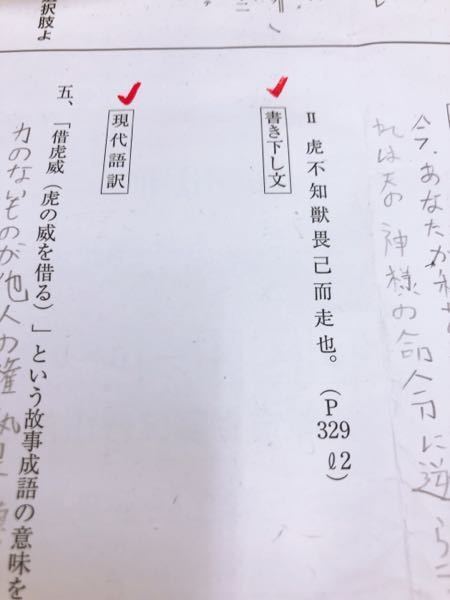 今、あなたが
れは天の神様の命令に逆ら
Ⅱ 虎不知獣畏己而走也。(P329 ℓ2)
書き下し文
現代語訳
五、「借虎威(虎の威を借る)」という故事成語の意味を
力のないものが他人の権
択肢よ